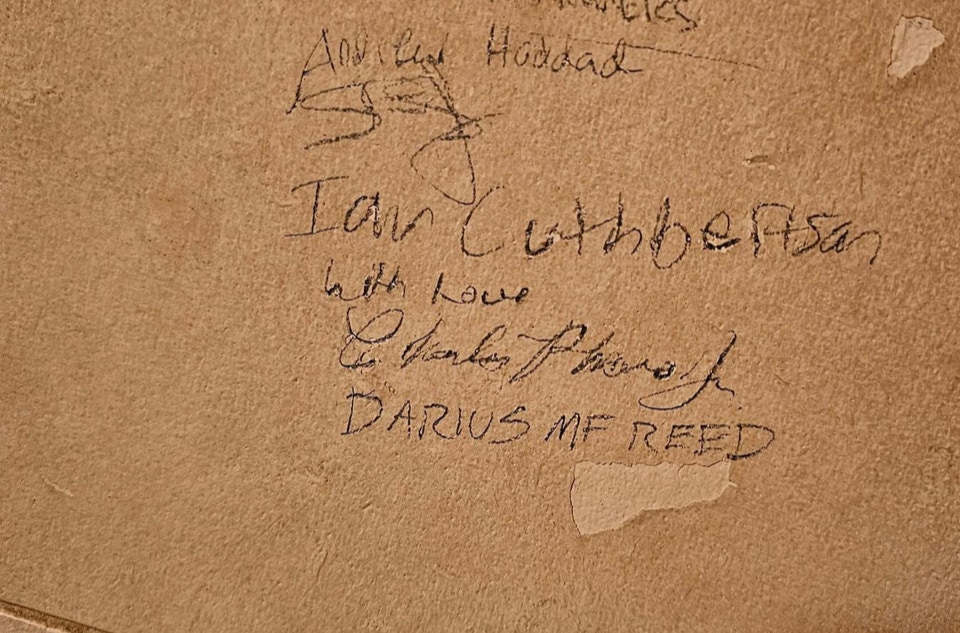 Andrew Haddad
Ian Cuthbertson
With Love
Charles Pharo Jr.
DARIUS MF REED